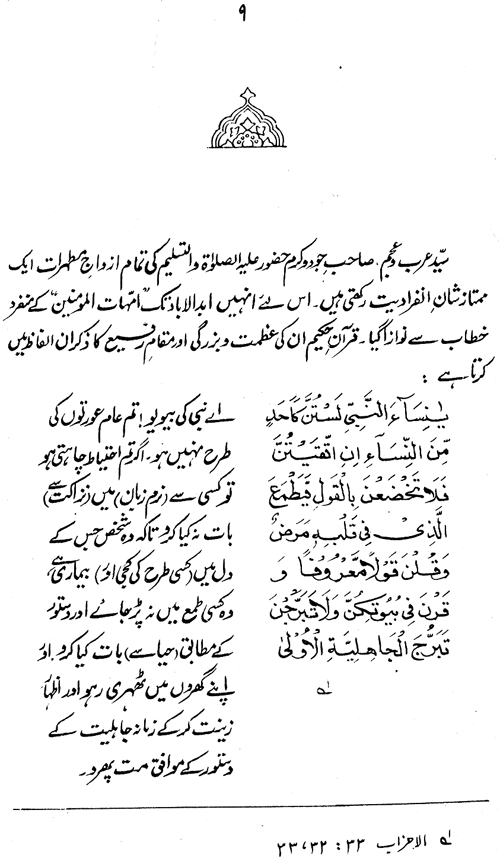 ۹
سیّد عرب و عجم، صاحبِ جود و کرم حضور علیہ الصلوٰۃ والتسلیم کی تمام ازواجِ مطہرات ایک
ممتاز شانِ انفرادیت رکھتی ہیں۔ اس لئے انہیں ابدالاباد تک "امہات المؤمنین" کے منفرد
خطاب سے نوازا گیا۔ قرآنِ حکیم ان کی عظمت و بزرگی اور مقامِ رفیع کا ذکر ان الفاظ میں
کرتا ہے :
یٰنِسَآءَ النَّبِیِّ لَسْتُنَّ کَاَحَدٍ
مِّنَ النِّسَآءِ اِنِ اتَّقَیْتُنَّ
فَلَا تَخْضَعْنَ بِالْقَوْلِ فَیَطْمَعَ
الَّذِیْ فِیْ قَلْبِهٖ مَرَضٌ
وَّقُلْنَ قَوْلًا مَّعْرُوْفًا وَ
قَرْنَ فِیْ بُیُوْتِکُنَّ وَلَا تَبَرَّجْنَ
تَبَرُّجَ الْجَاهِلِیَّةِ الْاُوْلٰی
لہ
اے نبی کی بیویو! تم عام عورتوں کی
طرح نہیں ہو۔ اگر تم احتیاط چاہتی ہو
تو کسی سے (نرم زبان) میں (نزاکت سے)
بات نہ کیا کرو تاکہ وہ شخص جس کے
دل میں (کسی طرح کی کجی اور) بیماری ہے
وہ کسی طمع میں نہ پڑ جائے اور دستور
کے مطابق (حیا سے) بات کیا کرو۔ اور
اپنے گھروں میں ٹھہری رہو اور اظہارِ
زینت کر کے زمانہ جاہلیت کے
دستور کے موافق مت پھرو۔
لہ الاحزاب ۳۳ : ۳۲، ۳۳